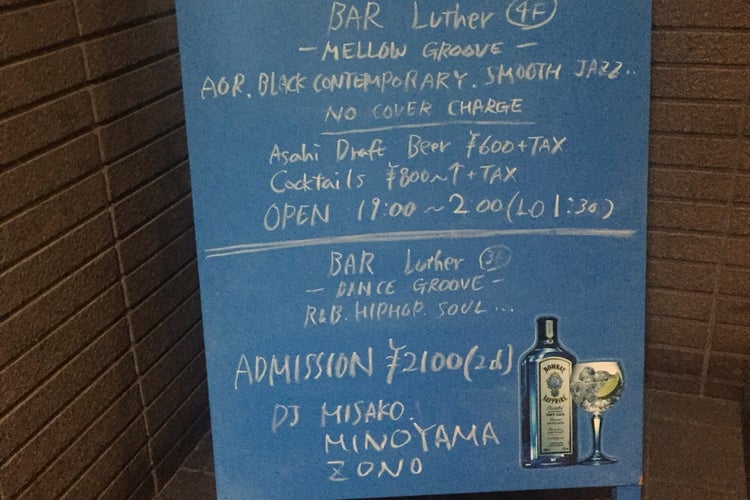 BAR Luther 4F
- MELLOW GROOVE -
AOR. BLACK CONTEMPORARY. SMOOTH JAZZ..
NO COVER CHARGE
Asahi Draft Beer ¥600+TAX
Cocktails ¥800~↑+TAX
OPEN 19:00~2:00(LO 1:30)
BAR Luther 3F
- DANCE GROOVE -
R&B. HIPHOP. SOUL...
ADMISSION ¥2100(2d)
DJ MISAKO.
MINOYAMA
ZONO
BOMBAY
SAPPHIRE